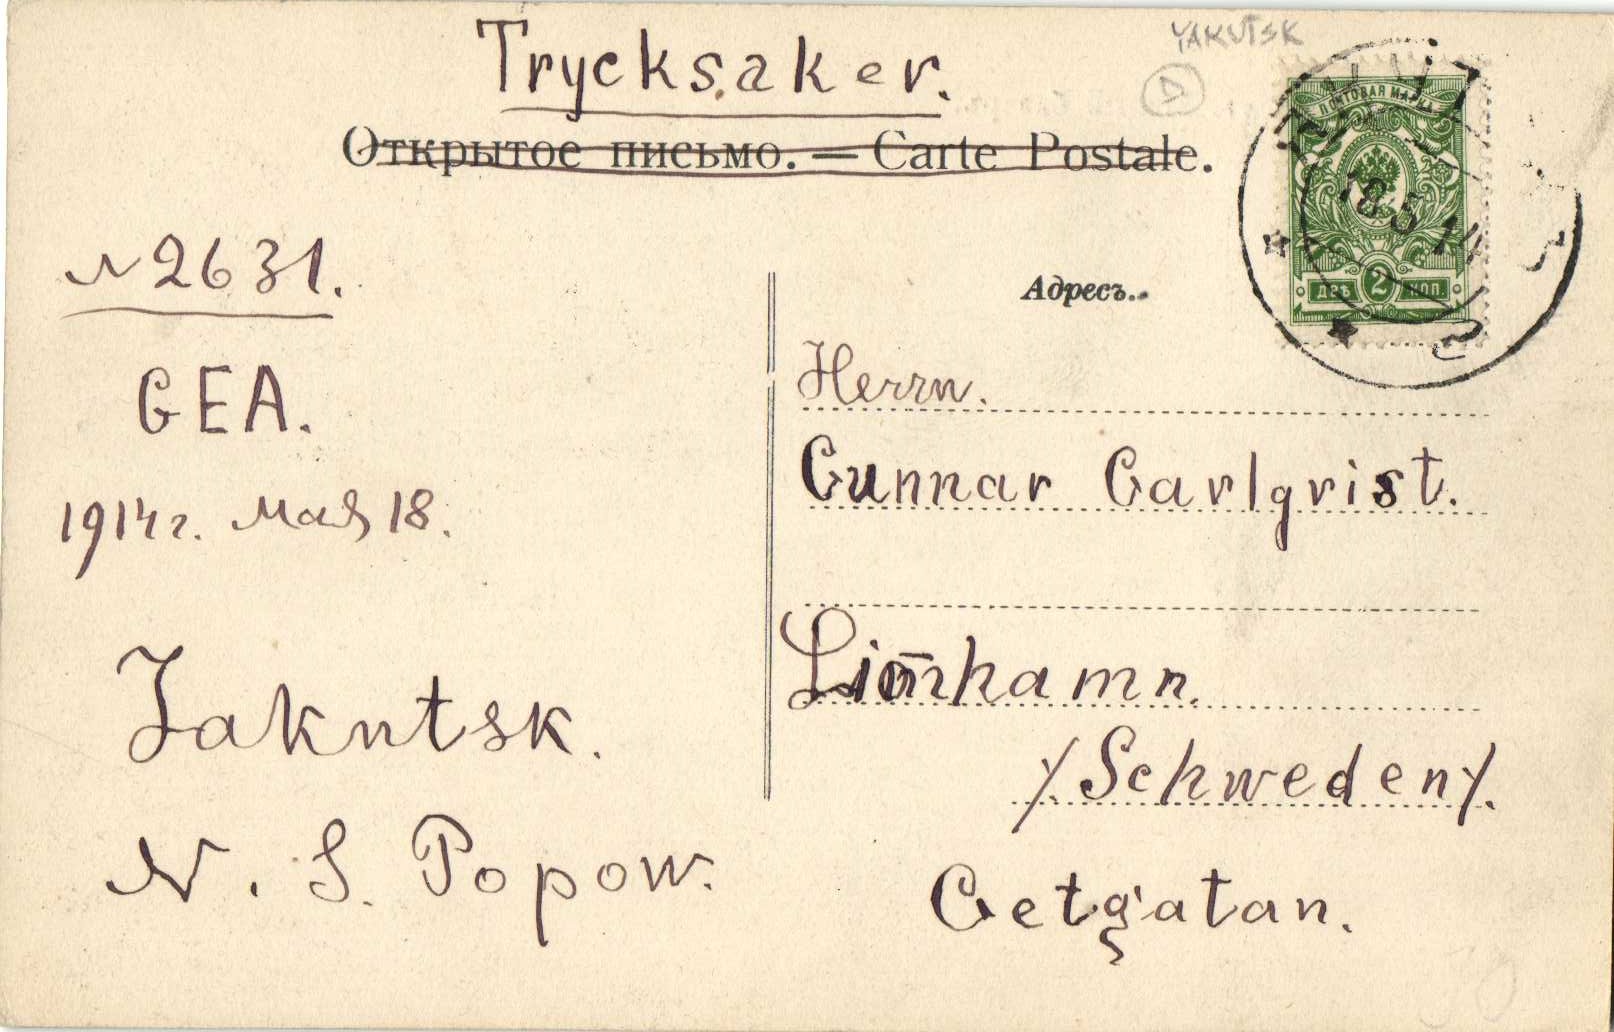 YAKUTSK
Trycksaker.
Открытое письмо. — Carte Postale.
ПОЧТОВАЯ МАРКА
18 5 14
2
ДВѢ 2 КОП.
№ 2631.
GEA.
1914г. Мая 18.
Jakutsk.
N. S. Popow.
Адресъ.
Herrn.
Gunnar Carlqvist.
Limhamn.
/Schweden/.
Getgatan.